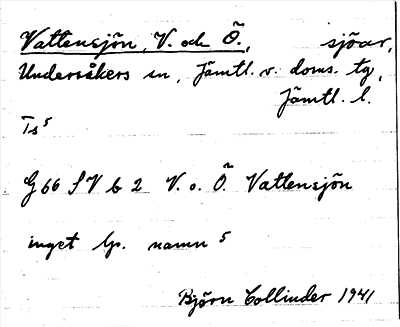 Vattensjön, V. och Ö., sjöar,
Undersåkers sn, Jämtl. v. doms. tg,
Jämtl. l.
Ts⁵
G 66 SV b 2 V. o. Ö. Vattensjön
inget lp. namn ⁵
Björn Collinder 1941